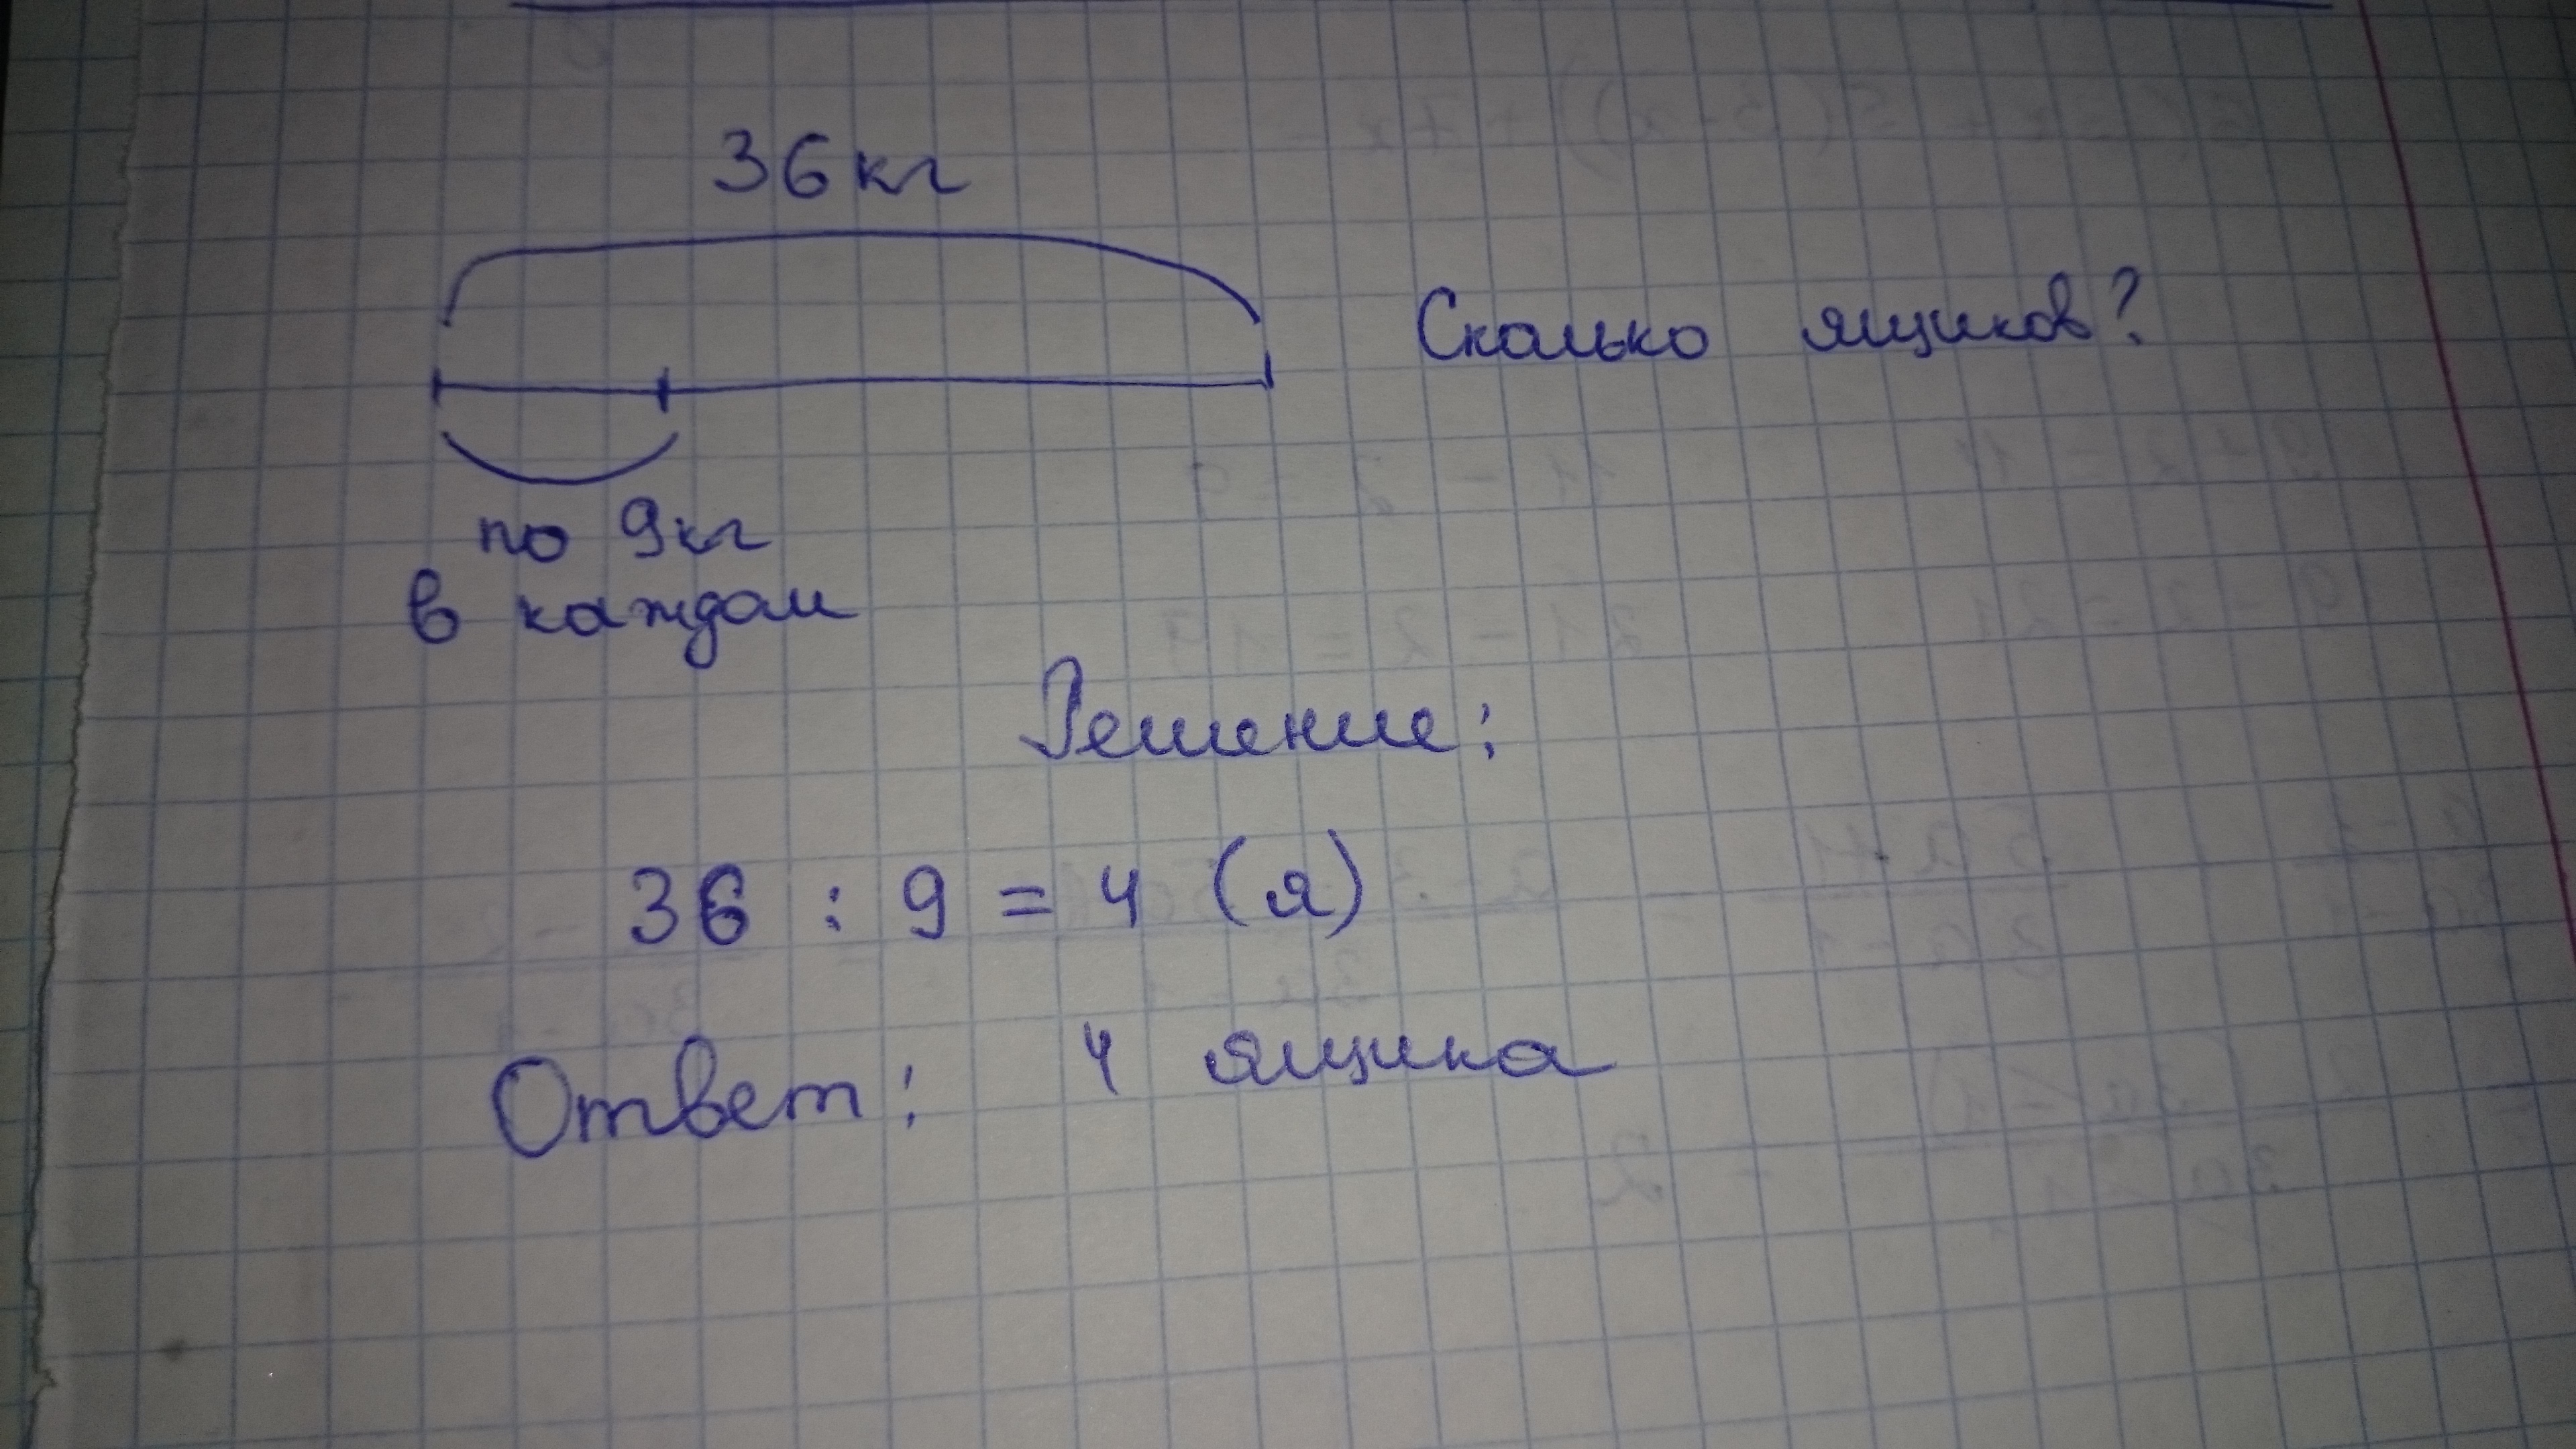 36 кг
Сколько ящиков?
по 9кг
в каждом
Решение:
36 : 9 = 4 (я)
Ответ: 4 ящика